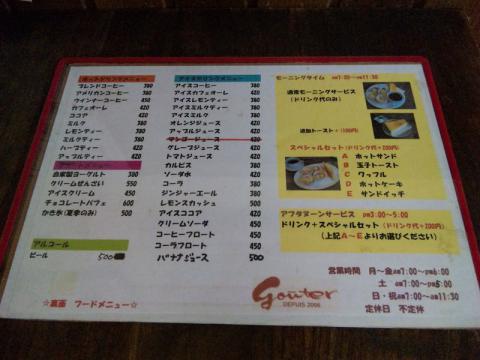 ホットドリンクメニュー
ブレンドコーヒー 380
アメリカンコーヒー 380
ウインナーコーヒー 450
カフェオーレ 420
ココア 420
ミルク 380
レモンティー 380
ミルクティー 380
ハーブティー 420
アップルティー 420
デザートメニュー
自家製ヨーグルト 380
クリームぜんざい 550
アイスクリーム 450
チョコレートパフェ 600
かき氷(夏季のみ)
アルコール
ビール 500
☆裏面 フードメニュー☆
アイスドリンクメニュー
アイスコーヒー 380
アイスカフェオーレ 420
アイスレモンティー 380
アイスミルクティー 380
アイスミルク 380
オレンジジュース 420
アップルジュース 420
マンゴージュース
グレープジュース 420
トマトジュース 420
カルピス 380
ソーダ水 420
コーラ 380
ジンジャーエール 380
レモンスカッシュ 500
アイスココア 420
クリームソーダ 450
コーヒーフロート 450
コーラフロート 450
バナナジュース 500
モーニングタイム AM7:00~AM11:30
通常モーニングサービス
(ドリンク代のみ)
追加トースト+(100円)
スペシャルセット(ドリンク代+200円)
A ホットサンド
B 玉子トースト
C ワッフル
D ホットケーキ
E サンドイッチ
アフタヌーンサービス PM3:00~5:00
ドリンク+スペシャルセット(ドリンク代+200円)
(上記A~Eよりお選びください)
Goûter
DEPUIS 2006
営業時間 月~金AM7:00~PM6:00
土 AM7:00~PM5:00
日・祝AM7:00~AM11:30
定休日 不定休